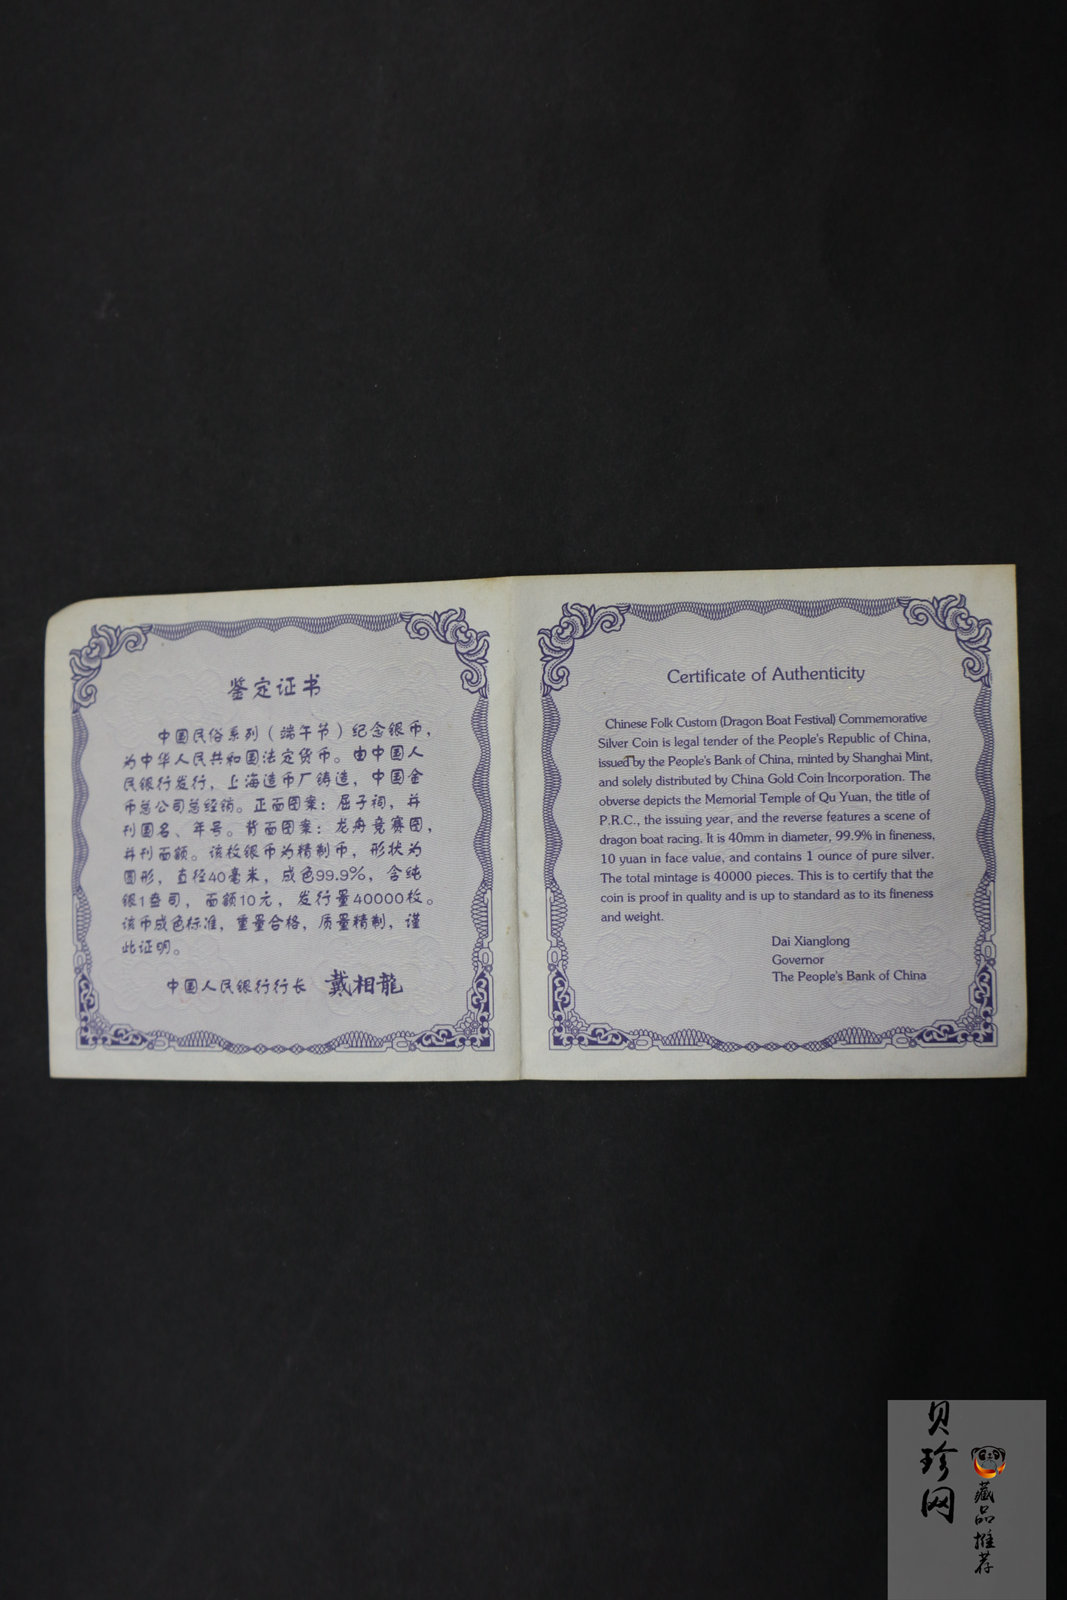 鉴定证书
中国民俗系列（端午节）纪念银币，
为中华人民共和国法定货币。由中国人
民银行发行，上海造币厂铸造，中国金
币总公司总经销。正面图案：屈子祠，并
刊国名、年号。背面图案：龙舟竞赛图，
并刊面额。该枚银币为精制币，形状为
圆形，直径40毫米，成色99.9%，含纯
银1盎司，面额10元，发行量40000枚。
该币成色标准，重量合格，质量精制，谨
此证明。
中国人民银行行长 戴相龍
Certificate of Authenticity
Chinese Folk Custom (Dragon Boat Festival) Commemorative
Silver Coin is legal tender of the People's Republic of China,
issued by the People's Bank of China, minted by Shanghai Mint,
and solely distributed by China Gold Coin Incorporation. The
obverse depicts the Memorial Temple of Qu Yuan, the title of
P.R.C., the issuing year, and the reverse features a scene of
dragon boat racing. It is 40mm in diameter, 99.9% in fineness,
10 yuan in face value, and contains 1 ounce of pure silver.
The total mintage is 40000 pieces. This is to certify that the
coin is proof in quality and is up to standard as to its fineness
and weight.
Dai Xianglong
Governor
The People's Bank of China
贝珍网
藏品推荐